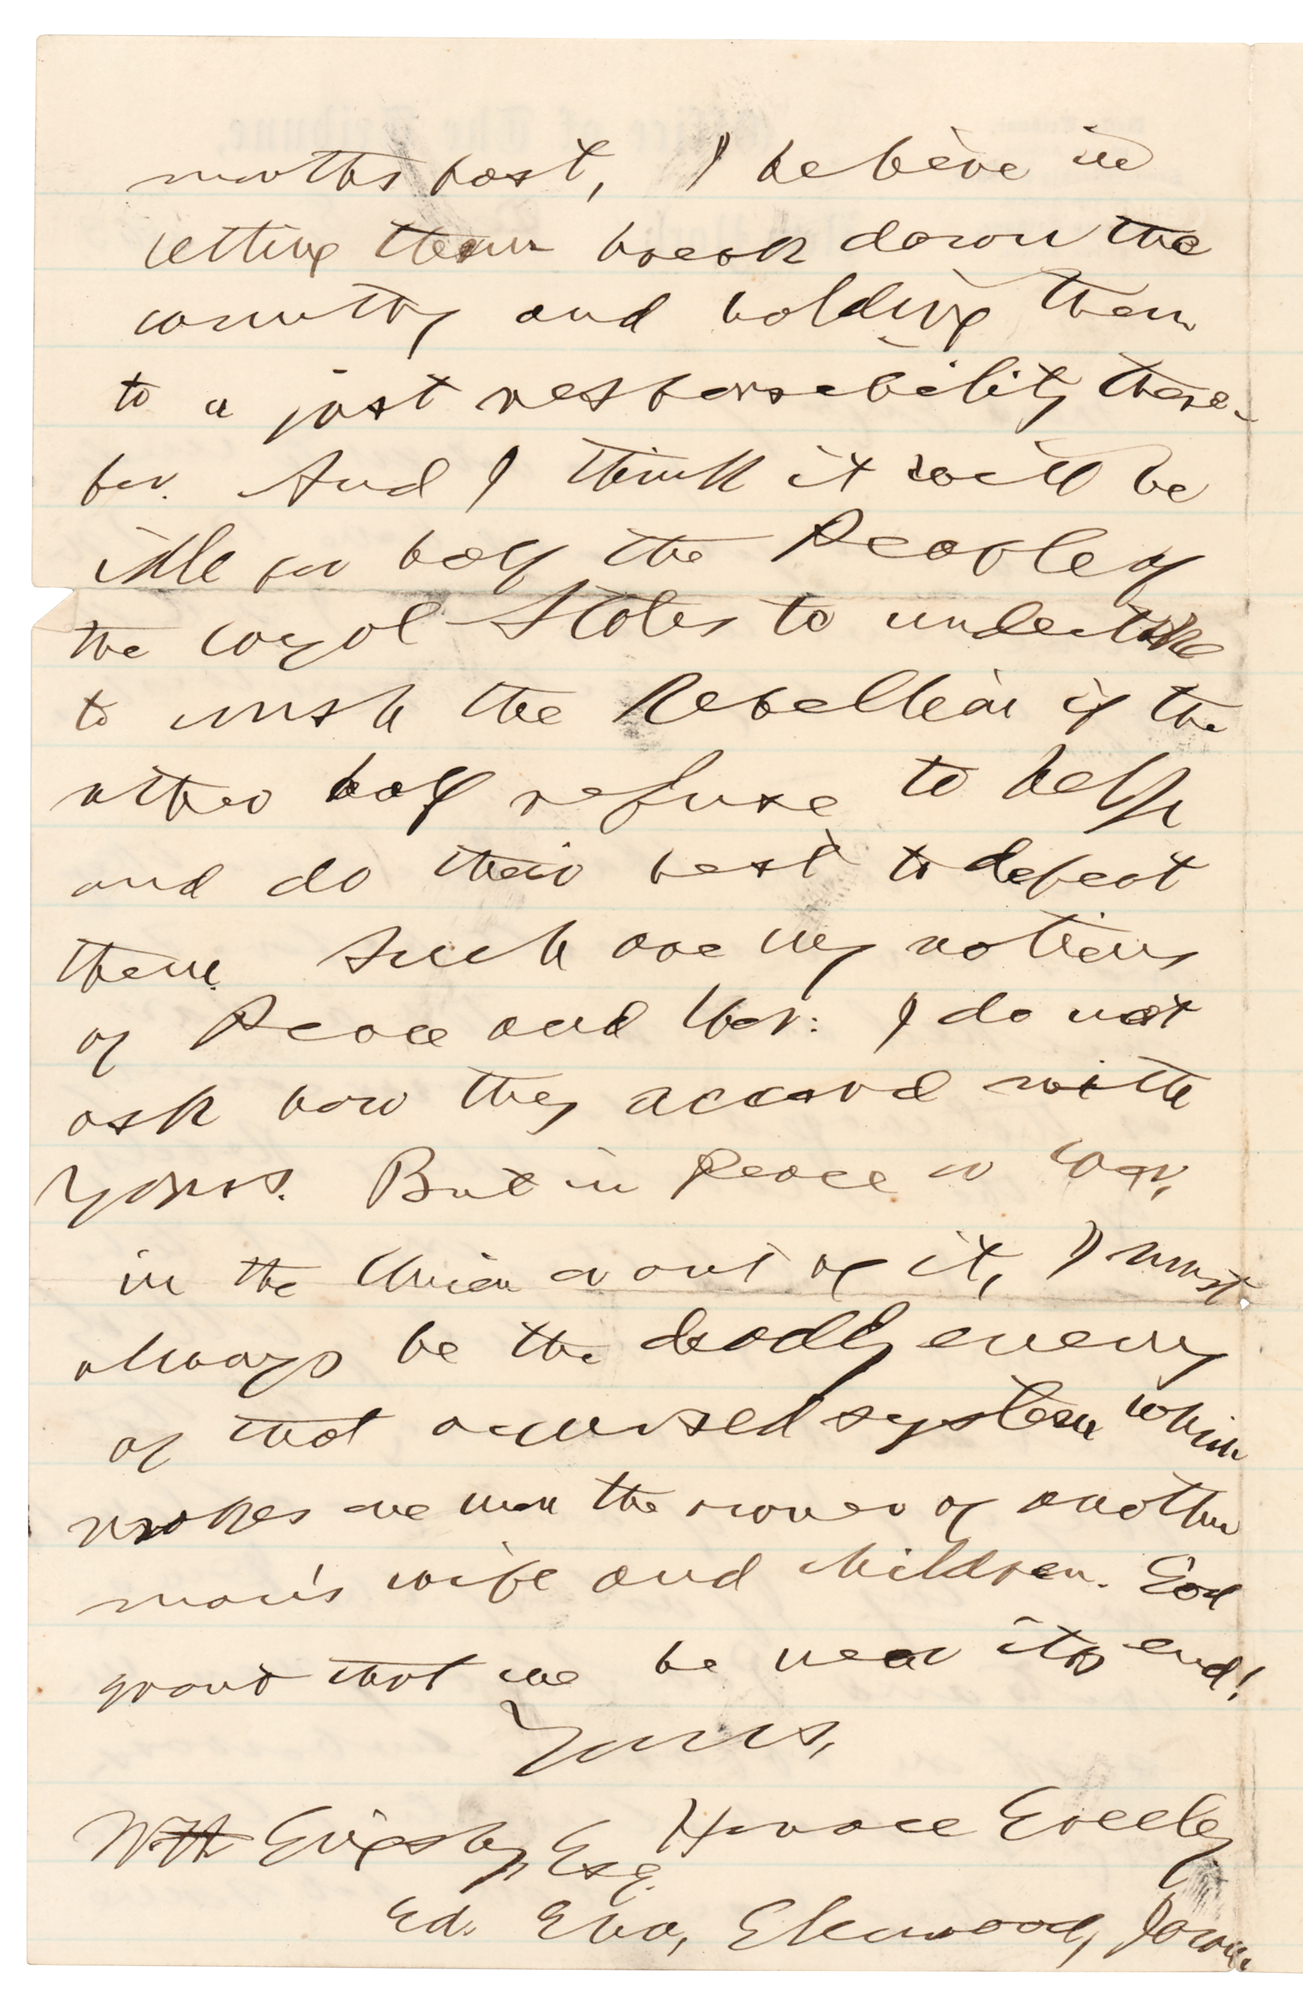 months past, I believe in
letting them break down the
country and holding them
to a just responsibility there-
for. And I think it will be
idle for half the People of
the loyal States to undertake
to crush the Rebellion if the
other half refuse to help
and do their best to defeat
them. Such are my notions
of Peace and War: I do not
ask how they accord with
yours. But in Peace or War,
in the Union or out of it, I must
always be the deadly enemy
of that accursed system which
makes one man the owner of another
man's wife and children. God
grant that we be near its end!
Yours,
Horace Greeley
W H Grigsby, Esq.
Ed. Era, Glenwood, Iowa